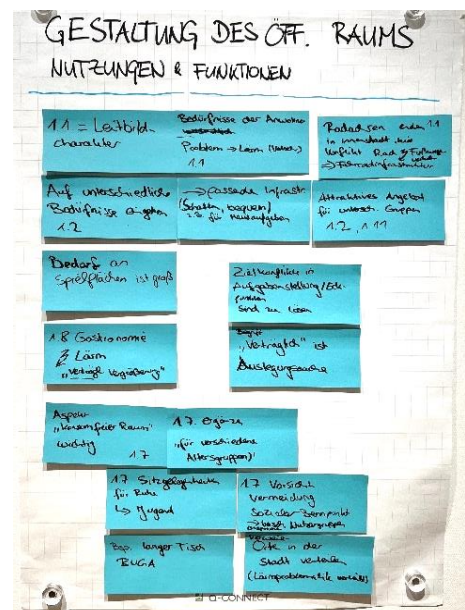 GESTALTUNG DES ÖFF. RAUMS
NUTZUNGEN & FUNKTIONEN
1.1 = Leitbild-
charakter
Bedürfnisse der Anwohner
Problem → Lärm
1.1
Radachsen enden 1.1
in Innenstadt
Konflikt Rad & Fußwege
→ Fahrradinfrastruktur
Auf unterschiedliche
Bedürfnisse eingehen
1.2
→ passende Infrastr.
(Schatten, bequem)
z.B. für
Attraktives Angebot
für untersch. Gruppen
1.2, 1.11
Bedarf an
Spielflächen ist groß
Zielkonflikte in
Aufgabenstellung/Eck-
punkten
sind zu lösen
1.8 Gastronomie
Lärm
"Verträgl. Vergrößerung"
Begriff
"Verträglich" ist
Auslegungssache
Aspekt
"konsumfreier Raum"
wichtig
1.7
1.7 ergänze
"für verschiedene
Altersgruppen"
1.7 Sitzgelegenheiten
für Ruhe
↳ Jugend
1.7 Vorsicht
Vermeidung
Sozialer Brennpunkt
→ Nutzergruppen
Bsp. langer Tisch
BUGA
Orte in der
Stadt verteilen
(Lärmproblematik verteilt)
Q-CONNECT